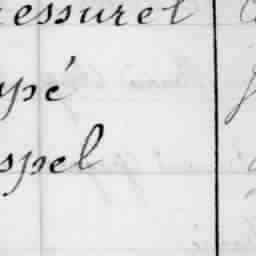 essuret
ypé
spel